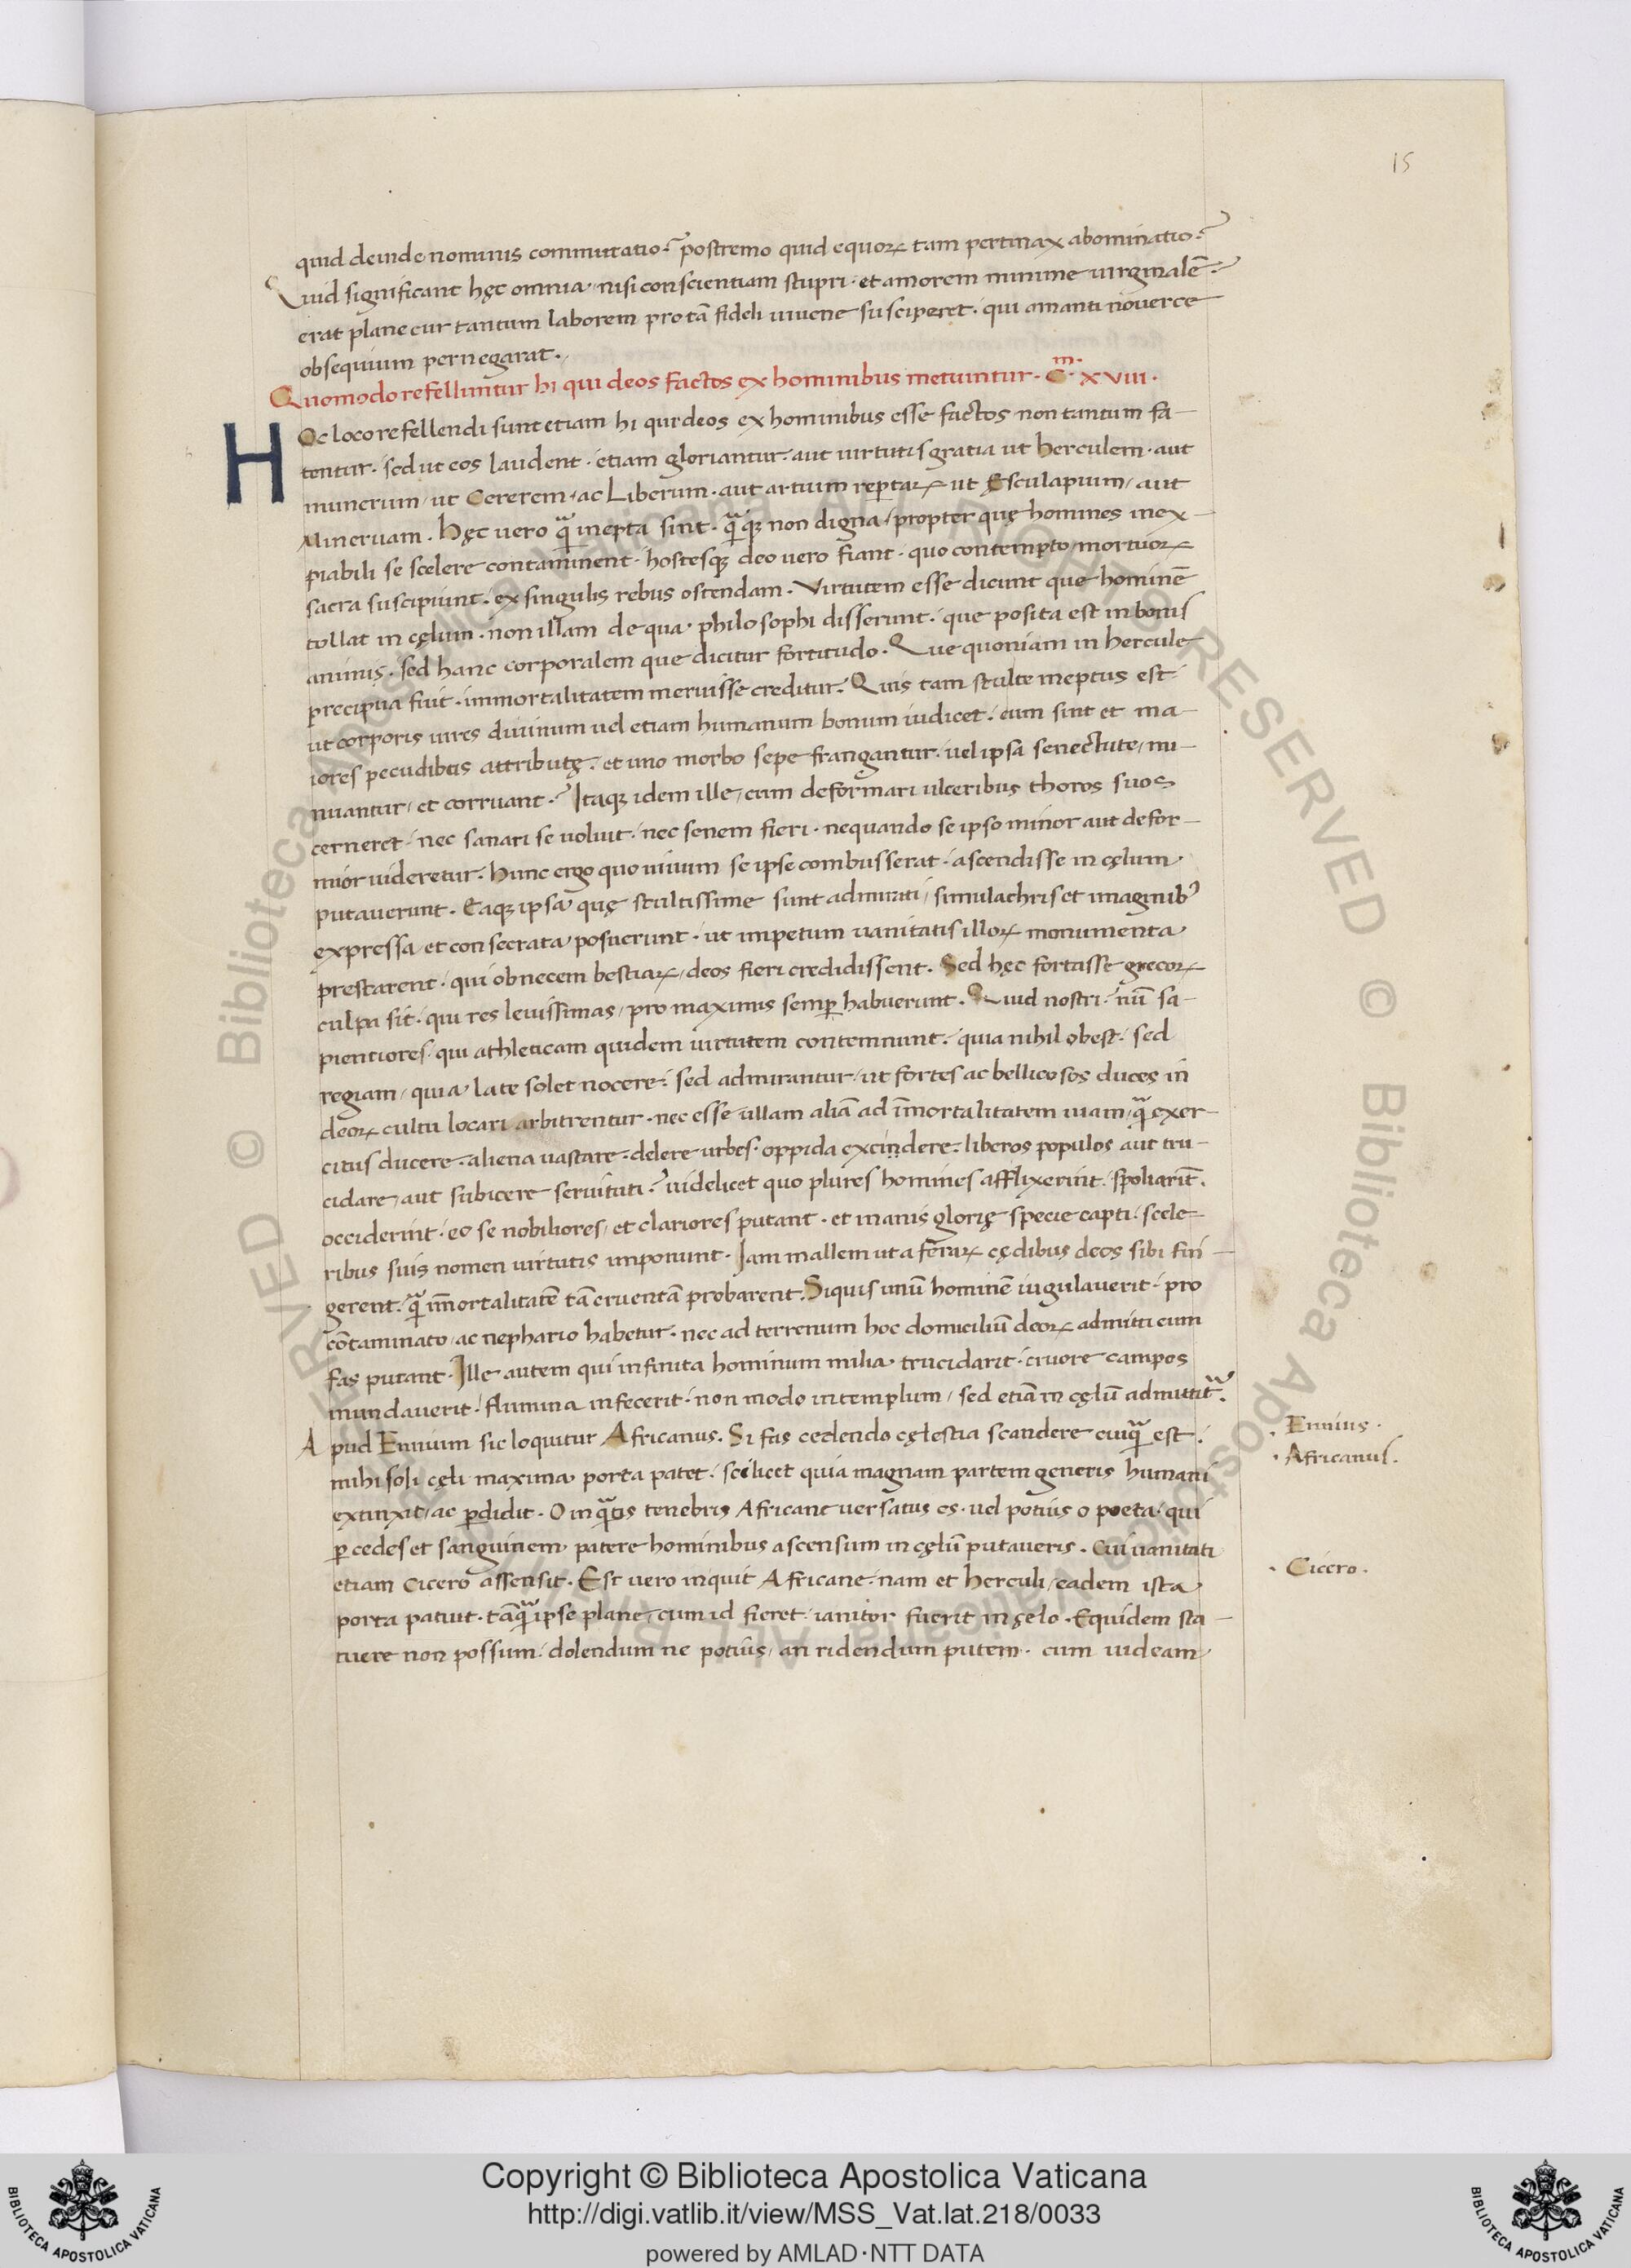 15
quid deinde nominis commutatio? postremo quid equoꝝ tam pertinax abominatio?
Quid significant hęc omnia, nisi conscientiam stupri · et amorem minime uirginalē?
erat plane cur tantum laborem pro tā fideli iuuene susciperet · qui amanti nouerce
obsequium pernegarat.
Quomodo refelluntur hi qui deos factos ex hominibus metuuntur · C.m XVIII ·
HOc loco refellendi sunt etiam hi qui deos ex hominibus esse factos non tantum fa-
tentur · sed ut eos laudent · etiam gloriantur · aut uirtutis gratia ut herculem · aut
munerum, ut Cererem, ac Liberum · aut artium reꝑtaꝝ ut Ęsculapium, aut
Mineruam. Hęc uero q̃ inepta sint · q̃qꝫ non digna, propter quę homines inex-
piabili se scelere contaminent · hostesqꝫ deo uero fiant · quo contempto mortuoꝝ
sacra suscipiunt · ex singulis rebus ostendam. Virtutem esse dicunt que hominē
tollat in cęlum · non illam de qua philosophi disserunt · que posita est in bonis
animis · sed hanc corporalem que dicitur fortitudo. Que quoniam in hercule
precipua fuit · immortalitatem meruisse creditur. Quis tam stulte ineptus est
ut corporis uires diuinum uel etiam humanum bonum iudicet · cum sint et ma-
iores pecudibus attributę · et uno morbo sepe frangantur · uel ipsa senectute, mi-
nuantur, et corruant? Itaqꝫ idem ille, cum deformari ulceribus thoros suos
cerneret · nec sanari se uoluit · nec senem fieri · nequando se ipso minor aut defor-
mior uideretur. Hunc ergo quo uiuum se ipse combusserat · ascendisse in cęlum
putauerunt. Eaqꝫ ipsa quę stultissime sunt admirati, simulachris et imaginibꝰ
expressa, et consecrata posuerunt · ut impetum uanitatis illoꝝ monumenta
prestarent · qui ob necem bestiaꝝ, deos fieri credidissent. Sed hęc fortasse grecoꝝ
culpa sit · qui res leuissimas, pro maximis semꝑ habuerunt. Quid nostri · nū sa-
pientiores · qui athleticam quidem uirtutem contemnunt · quia nihil obest · sed
regiam, quia late solet nocere · sed admirantur, ut fortes ac bellicosos duces in
deoꝝ cultu locari arbitrentur · nec esse ullam aliā ad īmortalitatem uiam, q̃ exer-
citus ducere · aliena uastare · delere urbes · oppida excindere · liberos populos aut tru-
cidare, aut subicere seruituti? uidelicet quo plures homines afflixerint · spoliarīt ·
occiderint · eo se nobiliores, et clariores putant · et inanis glorię specie capti · scele-
ribus suis nomen uirtutis imponunt. Iam mallem ut a feraꝝ cędibus deos sibi fin-
gerent · q̃ īmortalitatē tā cruentā probarent. Siquis unū hominē iugulauerit · pro
cōtaminato, ac nephario habetur · nec ad terrenum hoc domiciliū deoꝝ admitti eum
fas putant. Ille autem qui infinita hominum milia trucidarit · cruore campos
inundauerit, flumina infecerit · non modo in templum, sed etiā in cęlū admittit̃.
Apud Ennium sic loquitur Africanus. Si fas cedendo cęlestia scandere cuiq̃ est ·
mihi soli cęli maxima porta patet · scilicet quia magnam partem generis humani
extinxit, ac ꝑdidit. O in q̃tis tenebris Africane uersatus es · uel potius o poeta · qui
ꝑ cedes et sanguinem patere hominibus ascensum in cęlū putaueris. Cui uanitati
etiam Cicero assensit. Est uero inquit Africane · nam et herculi, eadem ista
porta patuit · tāq̃ ipse plane, cum id fieret · ianitor fuerit in cęlo. Equidem sta-
tuere non possum · dolendum ne potius, an ridendum putem · cum uideam
· Ennius ·
· Africanus.
· Cicero.
Copyright © Biblioteca Apostolica Vaticana
http://digi.vatlib.it/view/MSS_Vat.lat.218/0033
powered by AMLAD·NTT DATA
BIBLIOTECA APOSTOLICA VATICANA
BIBLIOTECA APOSTOLICA VATICANA